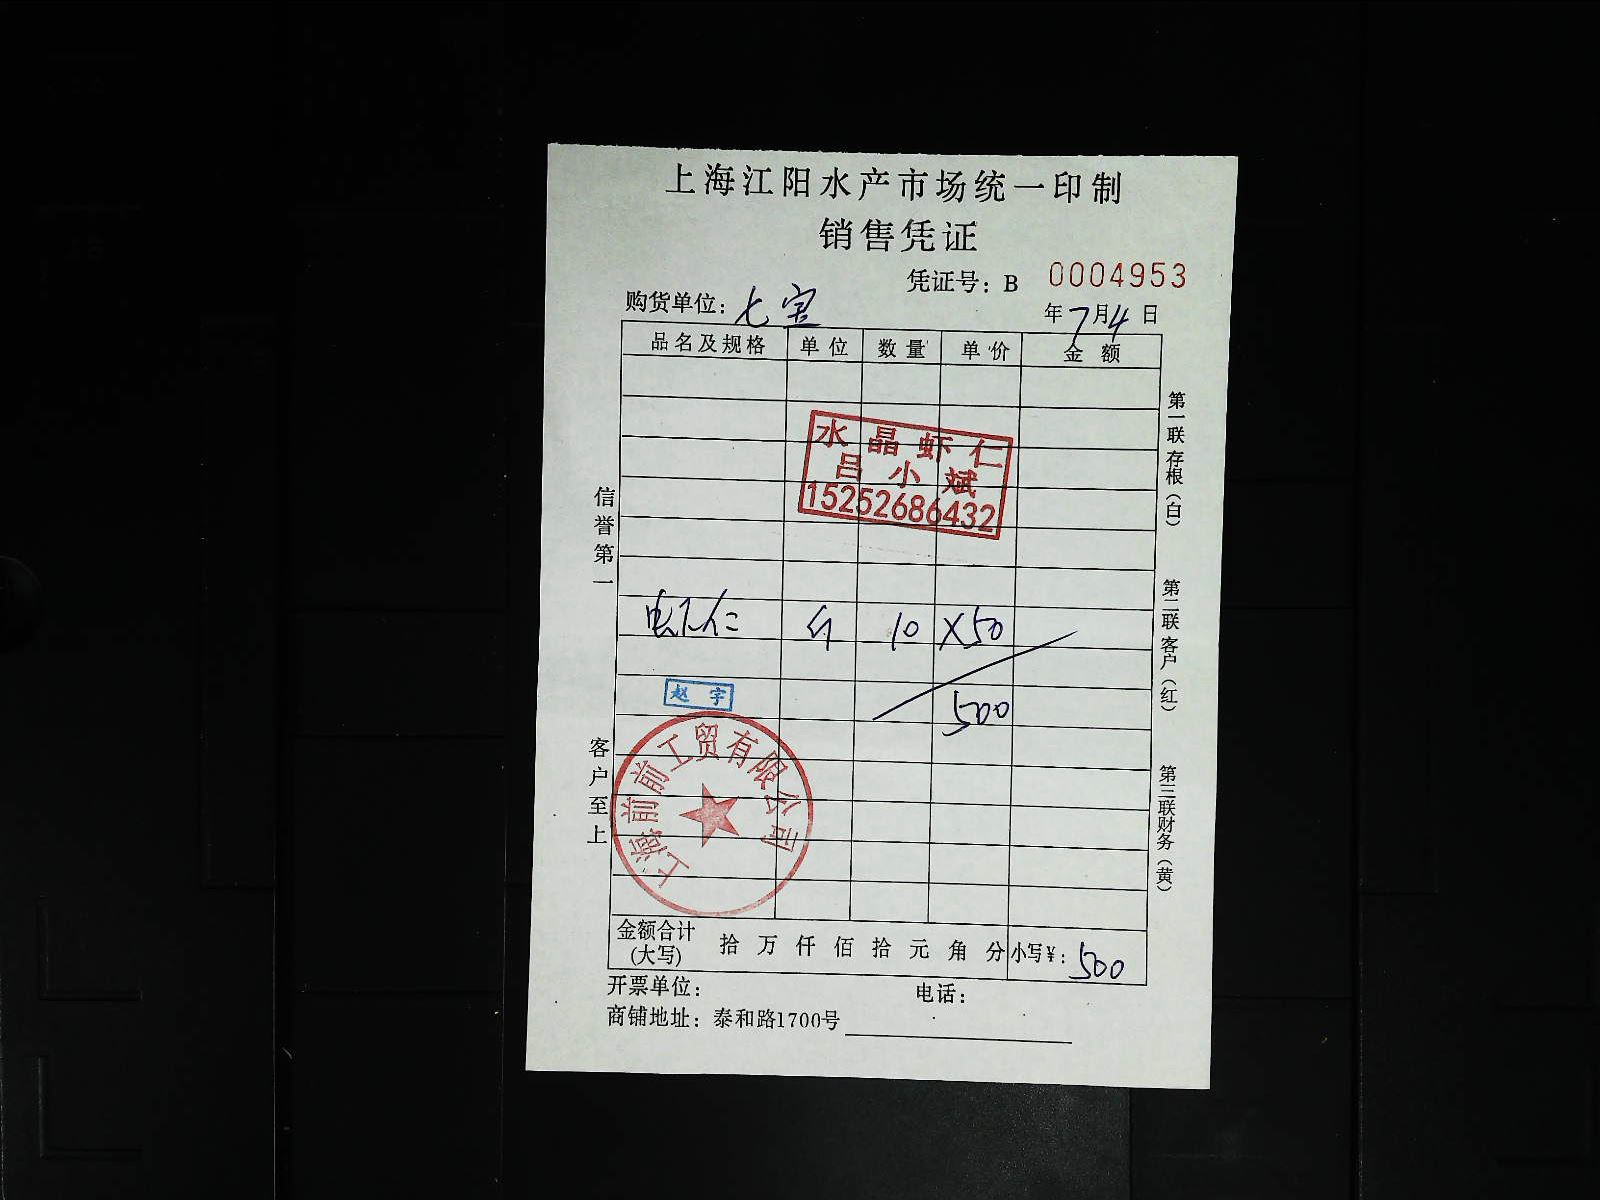 上海江阳水产市场统一印制
销售凭证
凭证号：B 0004953
购货单位：七宝
年7月4日
品名及规格 单位 数量 单价 金额
水晶虾仁
吕小斌
15252686432
仁 斤 10 X50
500
赵宇
上海前前工贸有限公司
信誉第一
客户至上
第一联存根（白）
第二联客户（红）
第三联财务（黄）
金额合计(大写) 拾万仟佰拾元角分 小写¥：500
开票单位： 电话：
商铺地址：泰和路1700号